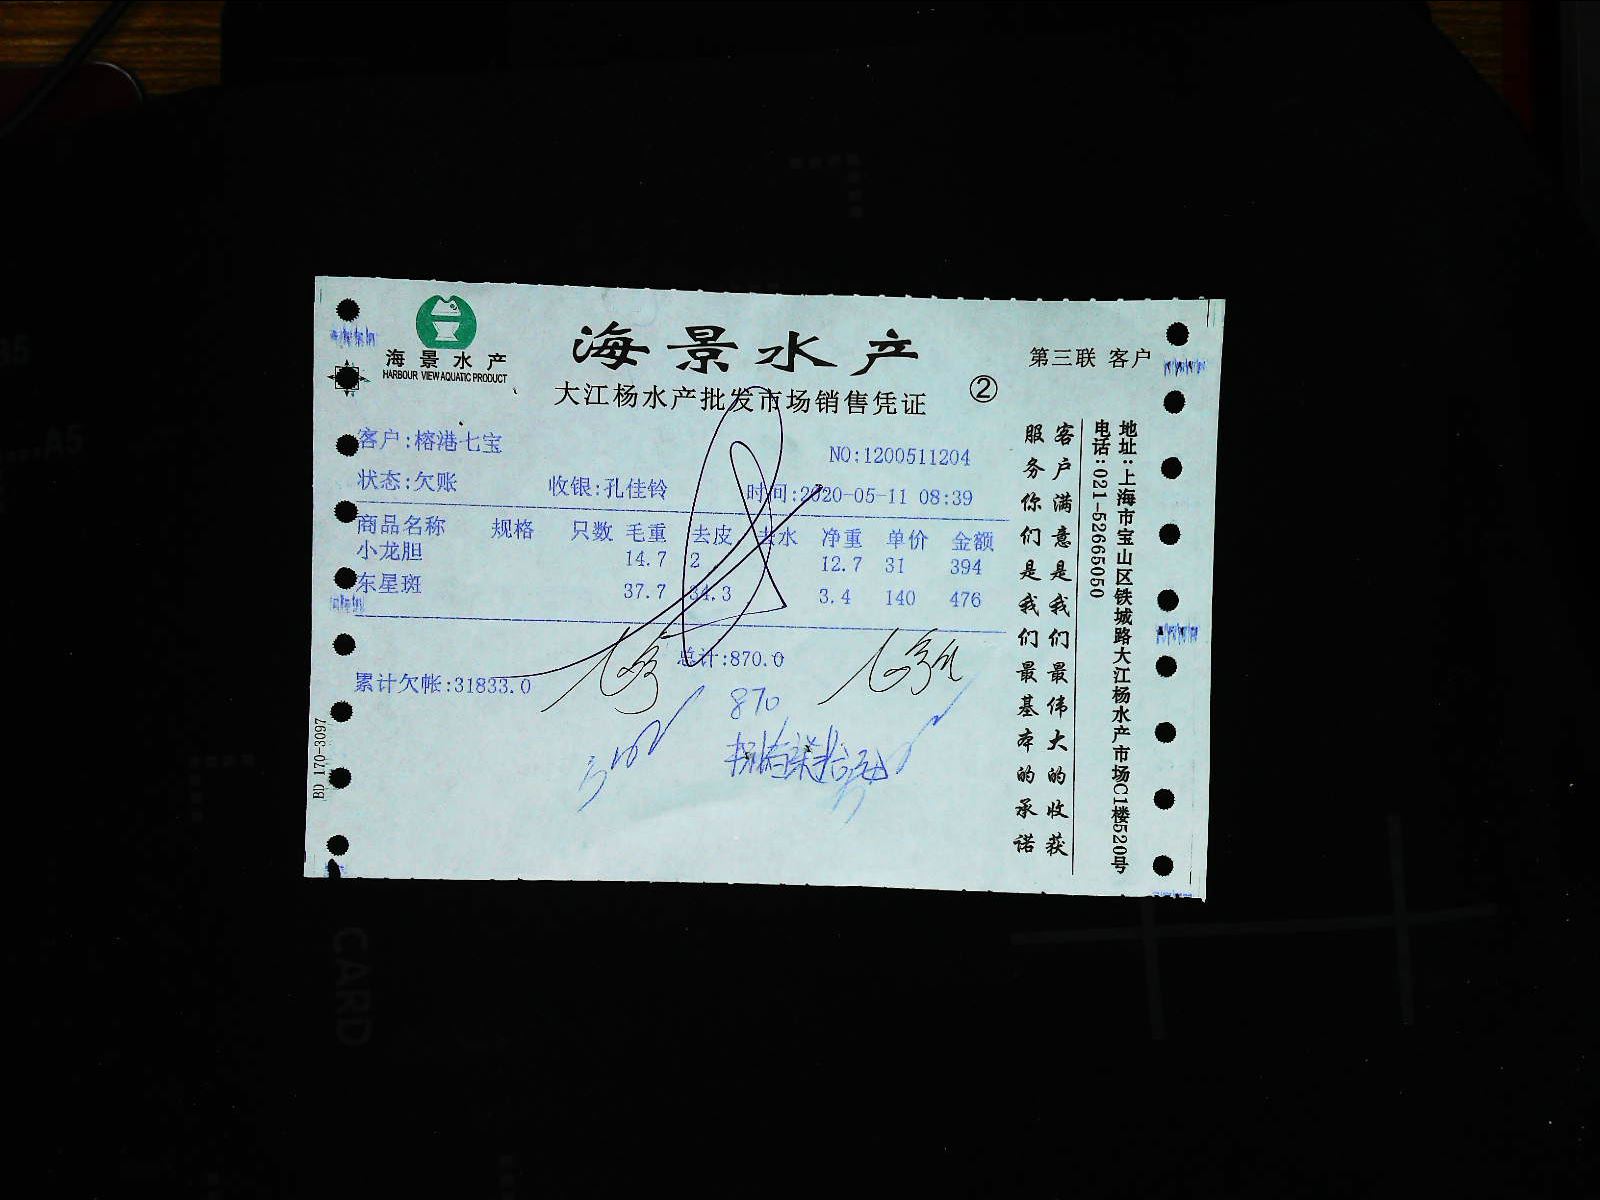 海景水产
HARBOUR VIEW AQUATIC PRODUCT
海景水产
大江杨水产批发市场销售凭证
②
第三联 客户
客户:榕港七宝
NO:1200511204
状态:欠账 收银:孔佳铃 时间:2020-05-11 08:39
商品名称 规格 只数 毛重 去皮 去水 净重 单价 金额
小龙胆 14.7 2 12.7 31 394
东星斑 37.7 34.3 3.4 140 476
总计:870.0
累计欠帐:31833.0
870
捌佰柒拾元
客户满意是我们最伟大的收获
服务你们是我们最基本的承诺
地址:上海市宝山区铁城路大江杨水产市场C1楼520号
电话:021-52665050
BD 170-3097
A5
CARD